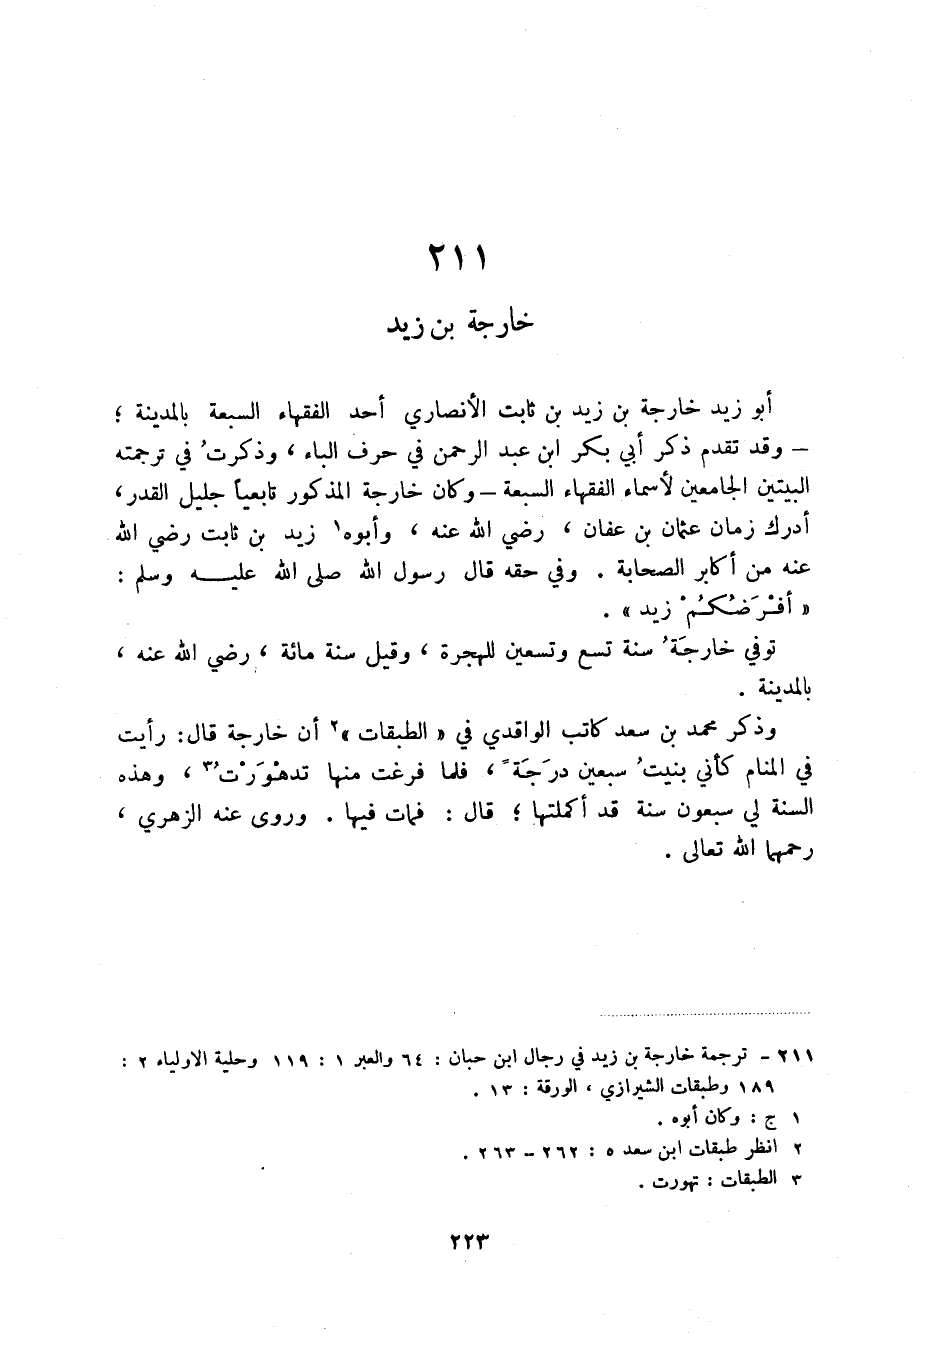 ٢١١
خارجة بن زيد
أبو زيد خارجة بن زيد بن ثابت الأنصاري أحد الفقهاء السبعة بالمدينة ؛
– وقد تقدم ذكر أبي بكر ابن عبد الرحمن في حرف الباء ، وذكرتُ في ترجمته
البيتين الجامعين لأسماء الفقهاء السبعة – وكان خارجة المذكور تابعياً جليل القدر ،
أدرك زمان عثمان بن عفان ، رضي الله عنه ، وأبوه١ زيد بن ثابت رضي الله
عنه من أكابر الصحابة . وفي حقه قال رسول الله صلى الله عليه وسلم :
« أفْرَضُكُمْ زيد » .
توفي خارجَةُ سنة تسع وتسعين للهجرة ، وقيل سنة مائة ، رضي الله عنه ،
بالمدينة .
وذكر محمد بن سعد كاتب الواقدي في « الطبقات »٢ أن خارجة قال : رأيت
في المنام كأني بنيتُ سبعين درَجَةً ، فلما فرغت منها تدهْوَرْتُ٣ ، وهذه
السنة لي سبعون سنة قد أكملتها ؛ قال : فمات فيها . وروى عنه الزهري ،
رحمهما الله تعالى .
٢١١ – ترجمة خارجة بن زيد في رجال ابن حبان : ٦٤ والعبر ١ : ١١٩ وحلية الاولياء ٢ :
١٨٩ وطبقات الشيرازي ، الورقة : ١٣ .
١ ج : وكان أبوه .
٢ انظر طبقات ابن سعد ٥ : ٢٦٢ – ٢٦٣ .
٣ الطبقات : تهورت .
٢٢٣